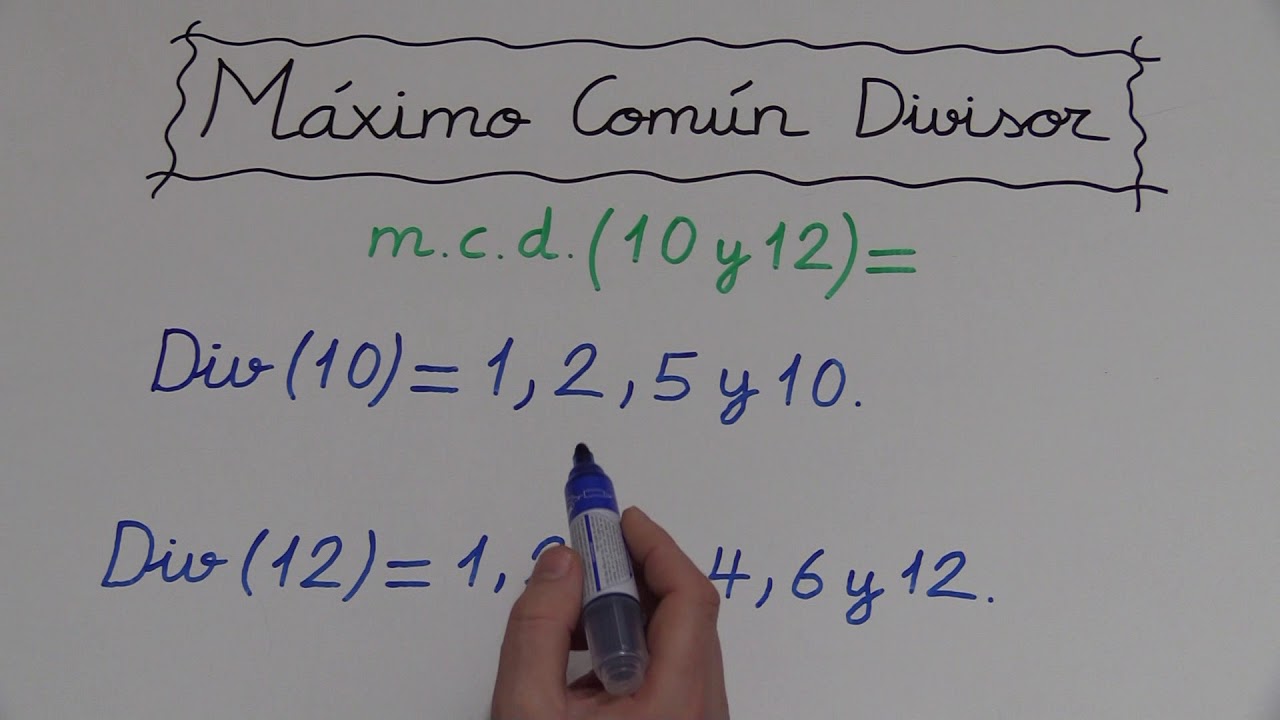 Máximo Común Divisor
m.c.d. (10 y 12) =
Div (10) = 1, 2, 5 y 10.
Div (12) = 1, 4, 6 y 12.